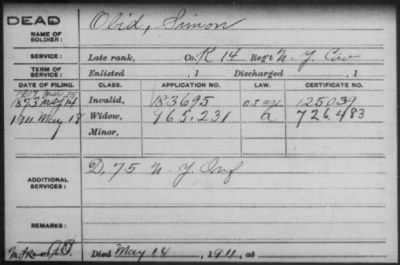 DEAD
NAME OF SOLDIER: Obid, Simon
SERVICE: Late rank, Co. K 14 Reg't N.Y. Cav
TERM OF SERVICE: Enlisted , 1 Discharged , 1
DATE OF FILING. CLASS. APPLICATION NO. LAW. CERTIFICATE NO.
1873 May 14 Invalid, 183695 125039
1911 May 18 Widow, 965,231 a 726,483
Minor,
ADDITIONAL SERVICES: D, 75 N.Y. Inf
REMARKS:
Died May 14, 1911, at